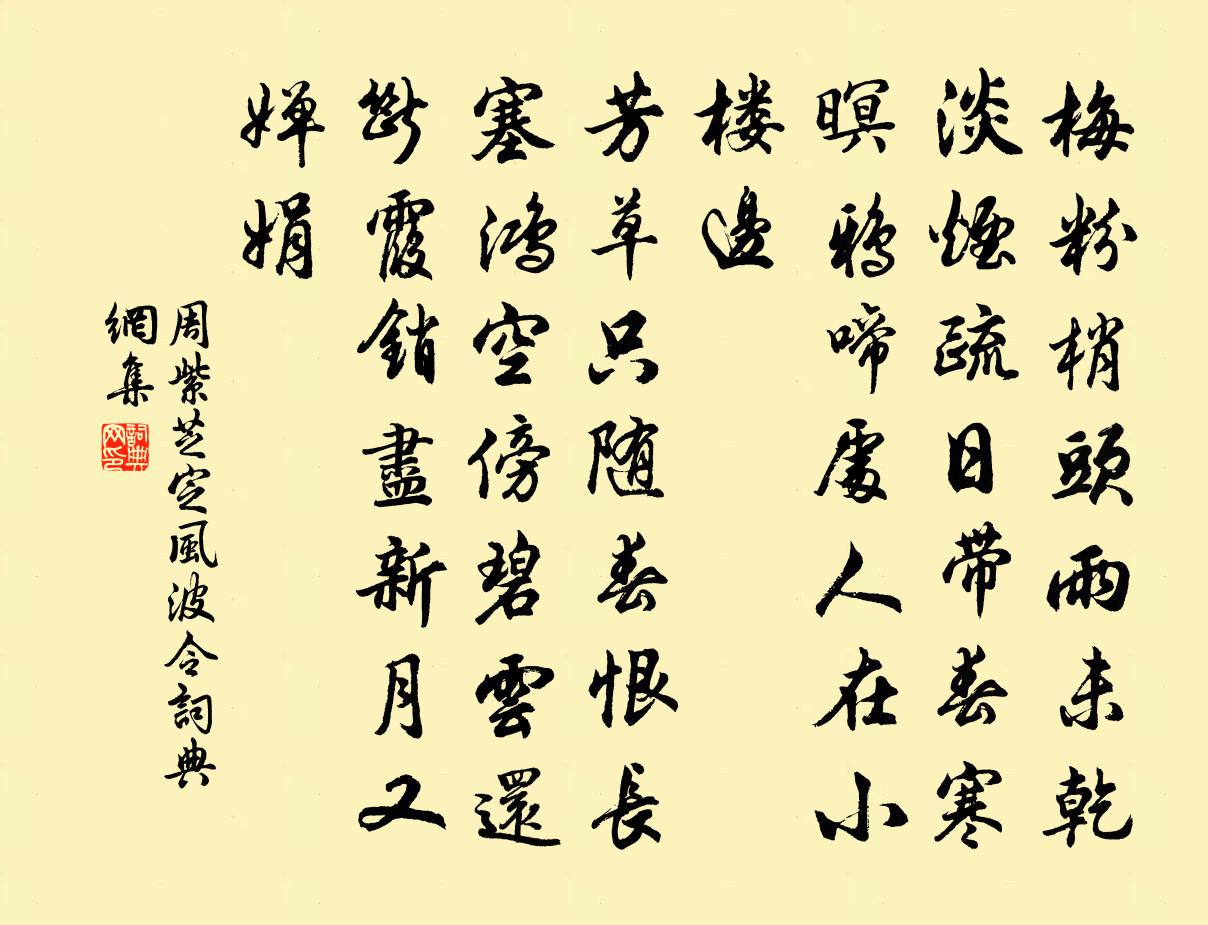 梅粉梢頭雨未乾
淡煙疏日帶春寒
暝鴉啼處人在小
楼邊
芳草只随春恨長
塞鴻空傍碧雲還
斷霞銷盡新月又
嬋娟
周紫芝定風波令詞典
網集
詞典
网印